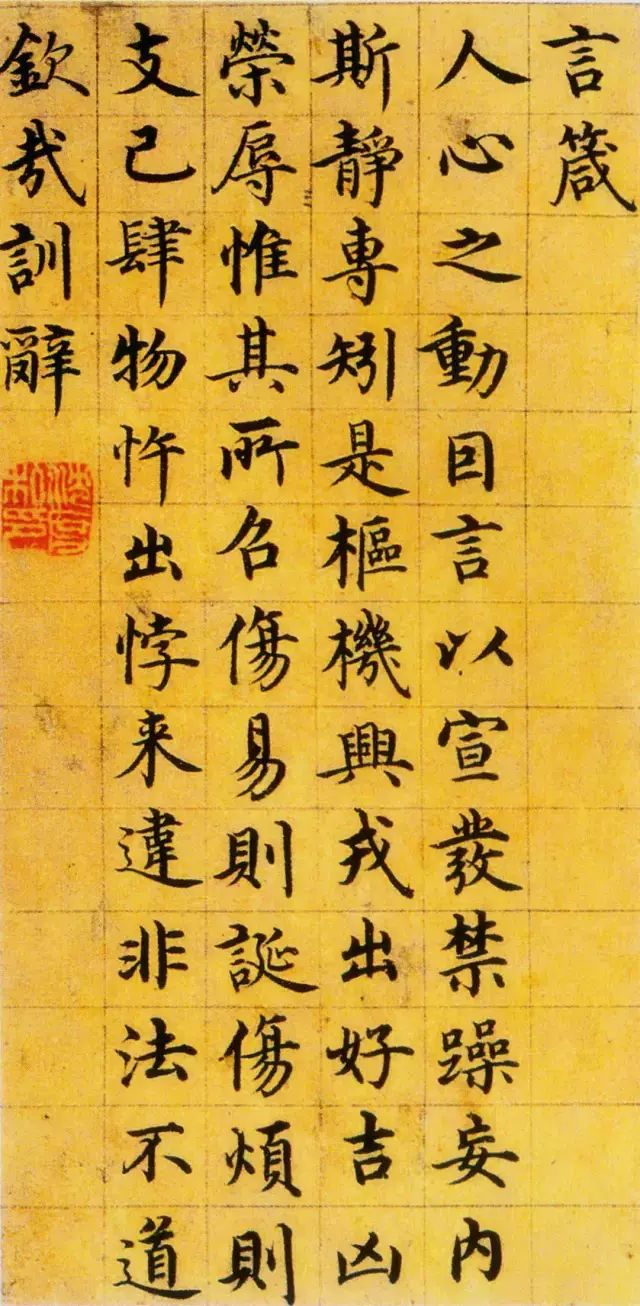 言箴
人心之動因言以宣發禁躁妄内
斯靜專矧是樞機興戎出好吉凶
榮辱惟其所召傷易則誕傷煩則
支己肆物忤出悖来違非法不道
欽哉訓辭